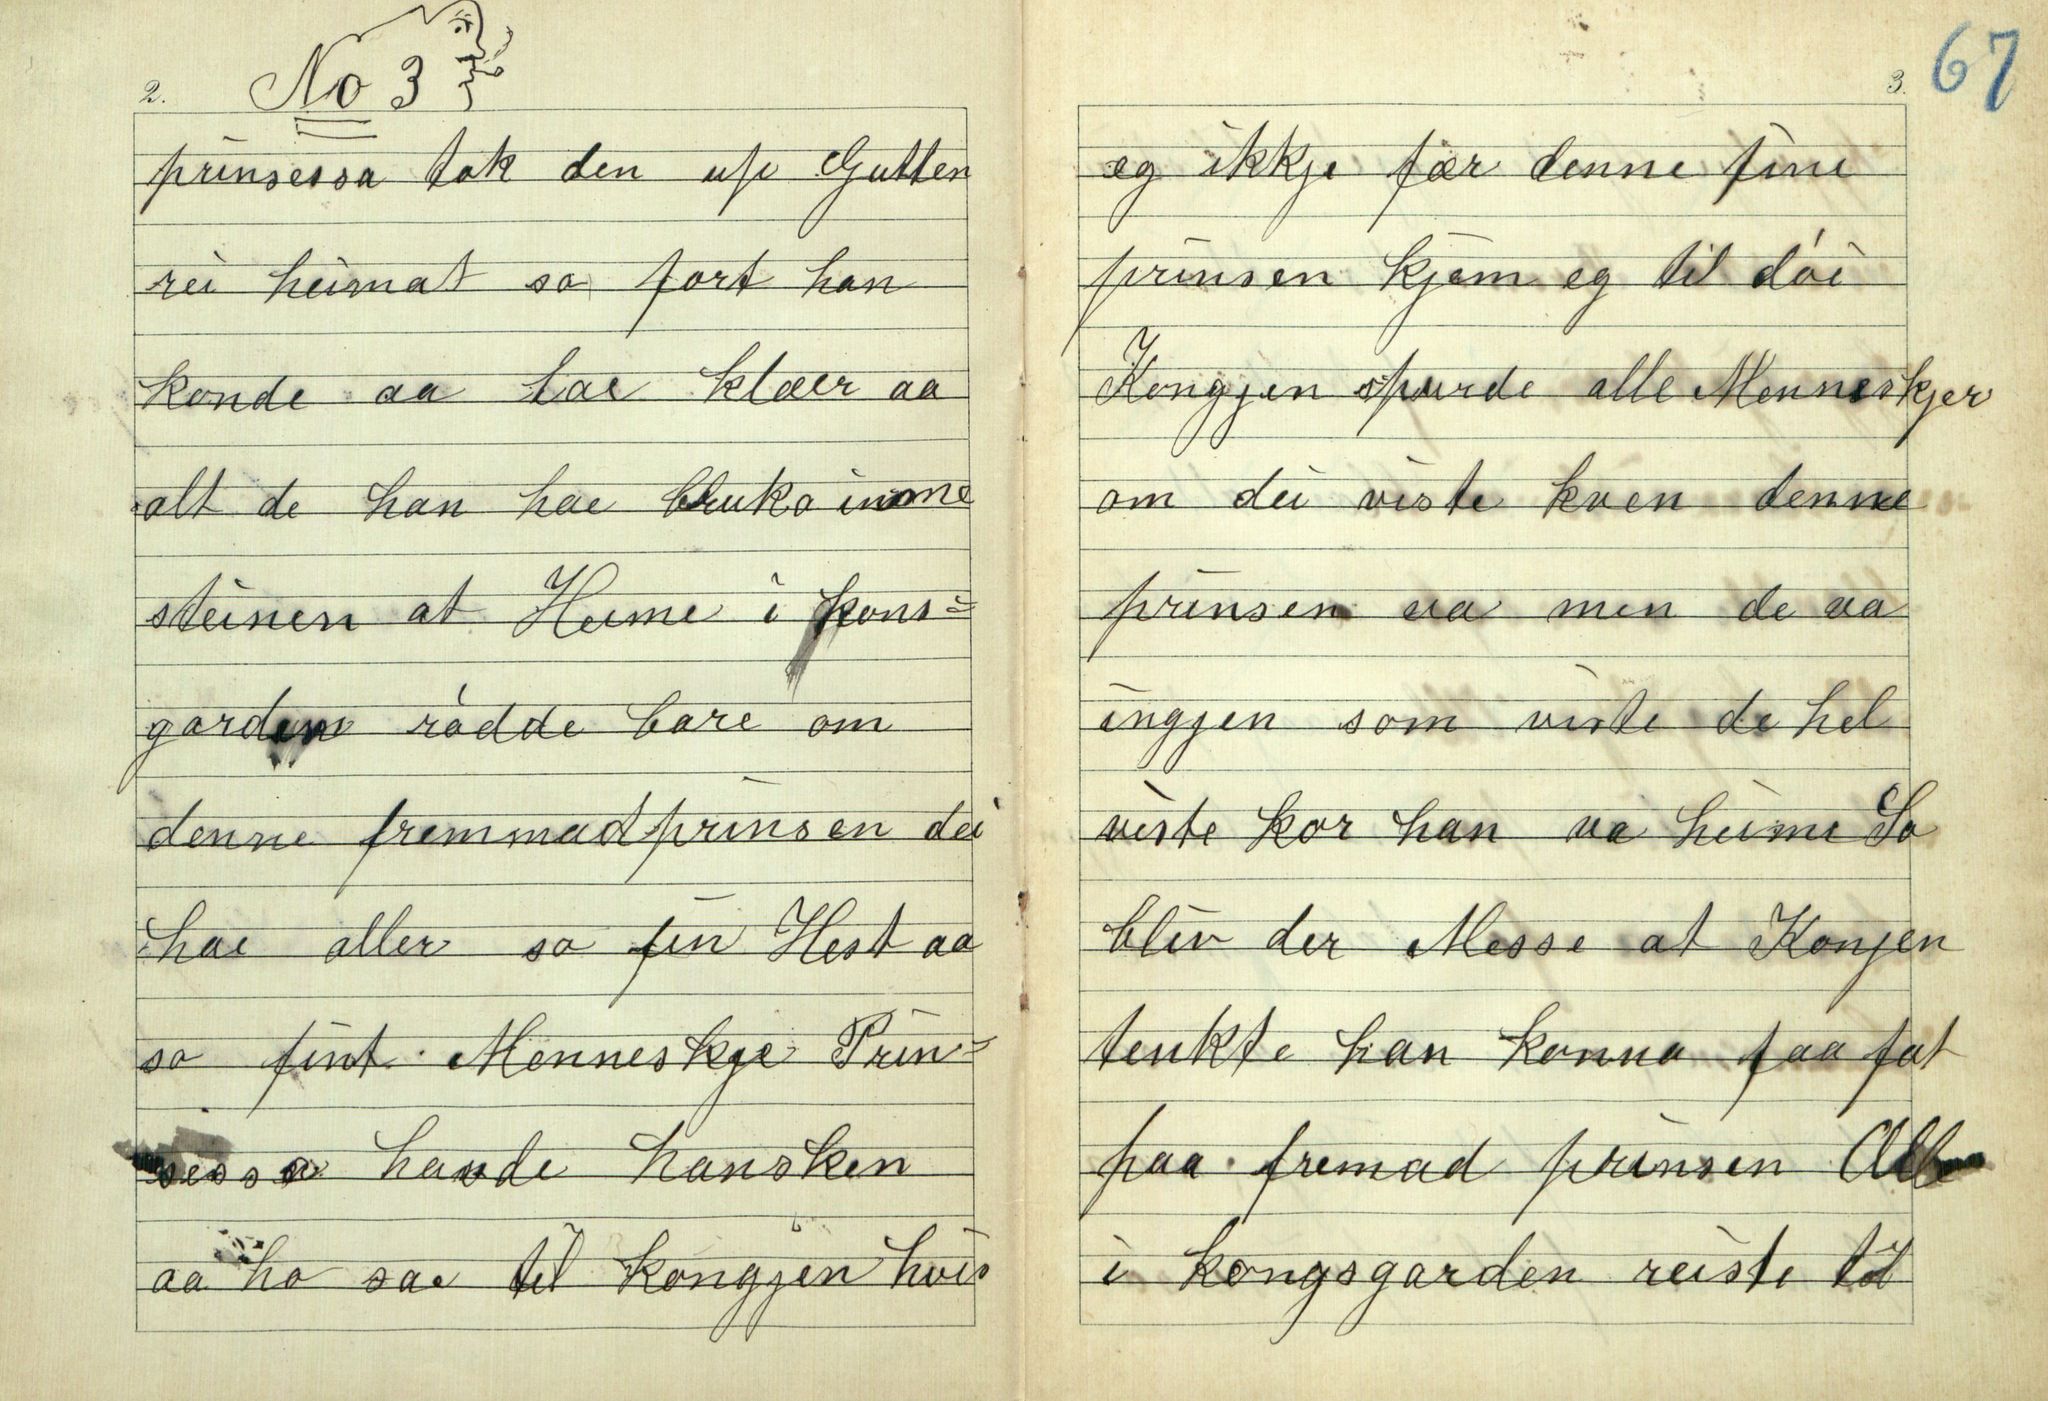 2.
No 3
prinsessa tok den up Gutten
rei heimat so fort han
konde aa hae klær aa
alt de han hae bruka inme
steinen at Heime i kons=
garden rödde bare om
denne fremmadprinsen dei
hae aller so fin Hest aa
so fint Menneskje Prin=
sessa havde hansken
aa ho sae til kongjen hvis
3.
67
eg ikkje fær denne fine
prinsen kjem eg til döi
Kongjen spurde alle Menneskjer
om dei viste kven denne
prinsen va men de va
ingjen som viste de hel
viste kor han va heime So
bliv der Messe at Konjen
tenkte han konna faa fat
paa fremad prinsen Alle
i kongsgarden reiste til